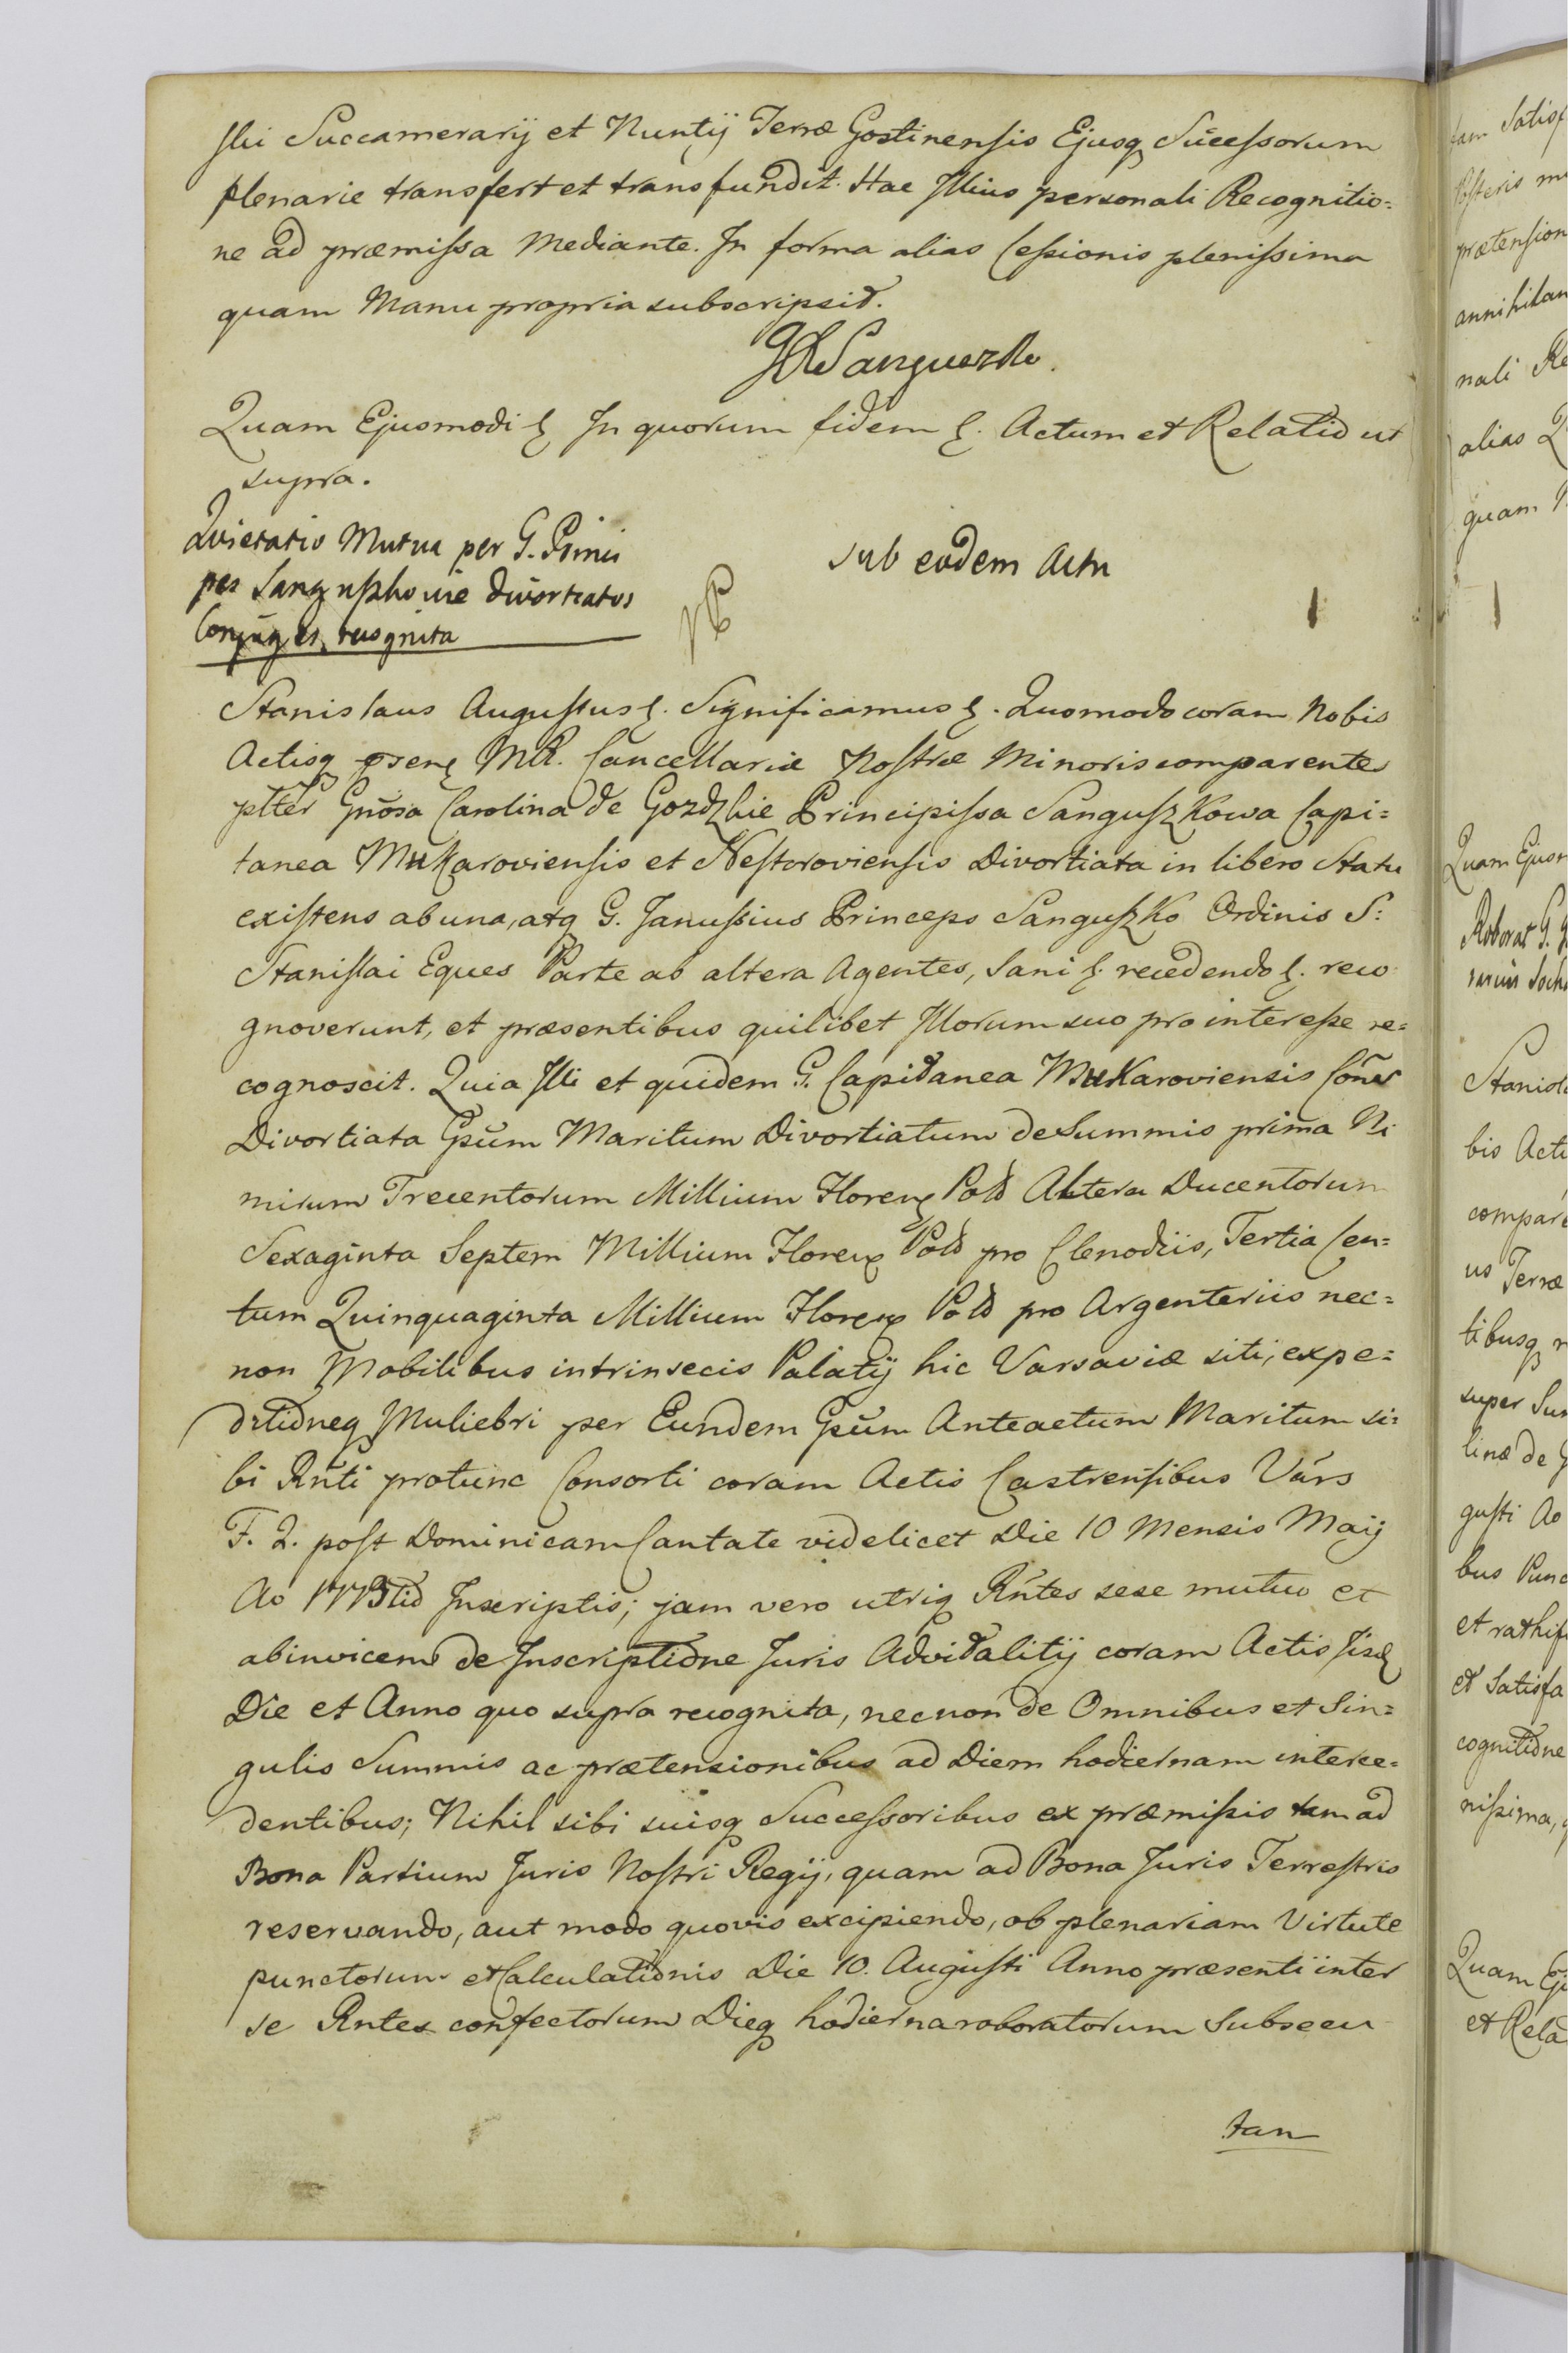 ski Succamerarij et Nuntij Terræ Gostinensis Ejusq Sucessorum
plenarie transfert et transfundit. Hac Illius personali Recognitio=
ne ad præmissa Mediante. In forma alias Cessionis plenissima
quam Manu propria subscripsit.
Quam Ejusmodi &. In quorum fidem &. Actum et Relatio ut
supra.
Quietatio Mutua per G. Princi
pes Sanguszkowie divortiatos
Conjuges recognita
sub eodem Actu
Stanislaus Augustus &. Significamus &. Quomodo coram Nobis
Actisq MR. Cancellariæ Nostræ Minoris comparentes
plter Gnosa Carolina de Gozdzkie Principissa Sanguszkowa Capi=
tanea Mukaroviensis et Nestoroviensis Divortiata in libero Statu
existens ab una, atq G. Janussius Princeps Sanguszko Ordinis S:
Stanislai Eques Parte ab altera Agentes, Sani &. recedendo &. reco
gnoverunt, et præsentibus quilibet Illorum suo pro interesse re=
cognoscit. Quia Illi et quidem G. Capitanea Mukaroviensis
Divortiata Gsum Maritum Divortiatum de Summis prima Ni
mirum Trecentorum Millium Floren Pold Altera Ducentorum
Sexaginta Septem Millium Floren Pold pro Clenodiis, Tertia Cen=
tum Quinquaginta Millium Floren Pold pro Argenteriis nec=
non Mobilibus intrinsecis Palatij hic Varsaviæ siti, expe=
ditioneq Muliebri per Eundem Gsum Anteactum Maritum si=
bi Rnti protunc Consorti coram Actis Castrensibus Vars
F. 2. post Dominicam Cantate videlicet Die 10 Mensis Maij
Ao 1773tio Inscriptis; jam vero utriq Rntes sese mutuo et
abinvicem de Inscriptione Juris Advitalitij coram Actis iisd
Die et Anno quo supra recognita, necnon de Omnibus et Sin=
gulis Summis ac prætensionibus ad Diem hodiernam interce=
dentibus; Nihil sibi suisq Successoribus ex præmissis tam ad
Bona Partium Juris Nostri Regij, quam ad Bona Juris Terrestris
reservando, aut modo quovis excipiendo, ob plenariam Virtute
punctorum et Calculationis Die 10. Augusti Anno præsenti inter
se Rntes confectorum Dieq hodierna roboratorum Subsecu
tan